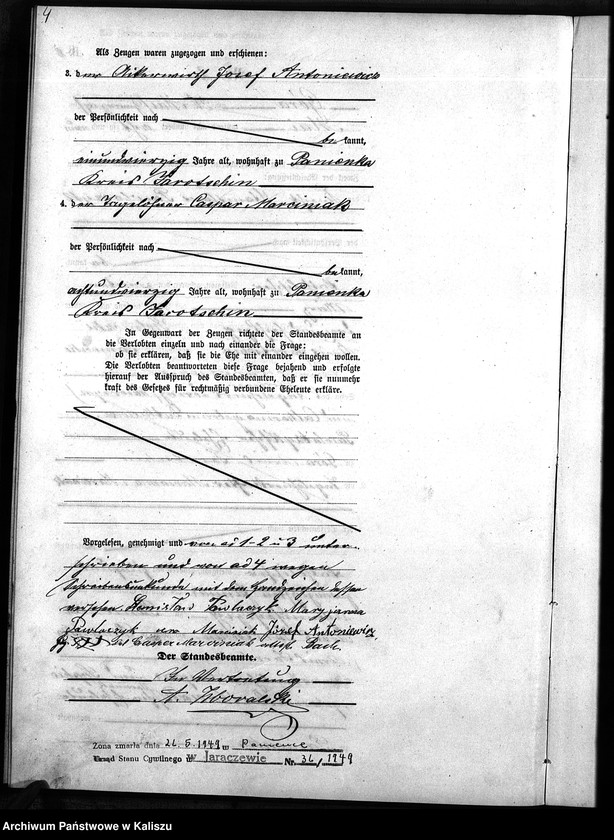 4
Als Zeugen waren zugezogen und erschienen:
3. der Ackerwirth Josef Antoniewicz
der Persönlichkeit nach
bekannt,
einundvierzig Jahre alt, wohnhaft zu Panienka
Kreis Jarotschin
4. der Tagelöhner Caspar Marciniak
der Persönlichkeit nach
bekannt,
achtundvierzig Jahre alt, wohnhaft zu Panienka
Kreis Jarotschin
In Gegenwart der Zeugen richtete der Standesbeamte an
die Verlobten einzeln und nach einander die Frage:
ob sie erklären, daß sie die Ehe mit einander eingehen wollen.
Die Verlobten beantworteten diese Frage bejahend und erfolgte
hierauf der Ausspruch des Standesbeamten, daß er sie nunmehr
kraft des Gesetzes für rechtmäßig verbundene Eheleute erkläre.
Vorgelesen, genehmigt und von ad 1-2 u 3 unter-
schrieben und von ad 4 wegen
Schreibensunkunde mit dem Handzeichen dessen
versehen. Pawlaczyk Maryjanna
Pawlaczyk Josef Antoniewicz
+++ Casper Marciniak
Der Standesbeamte.
In Vertretung
A.
Zona zmarła dnia 26.5.1949 w Panience
Urząd Stanu Cywilnego w Jaraczewie Nr. 36/1949
Archiwum Państwowe w Kaliszu